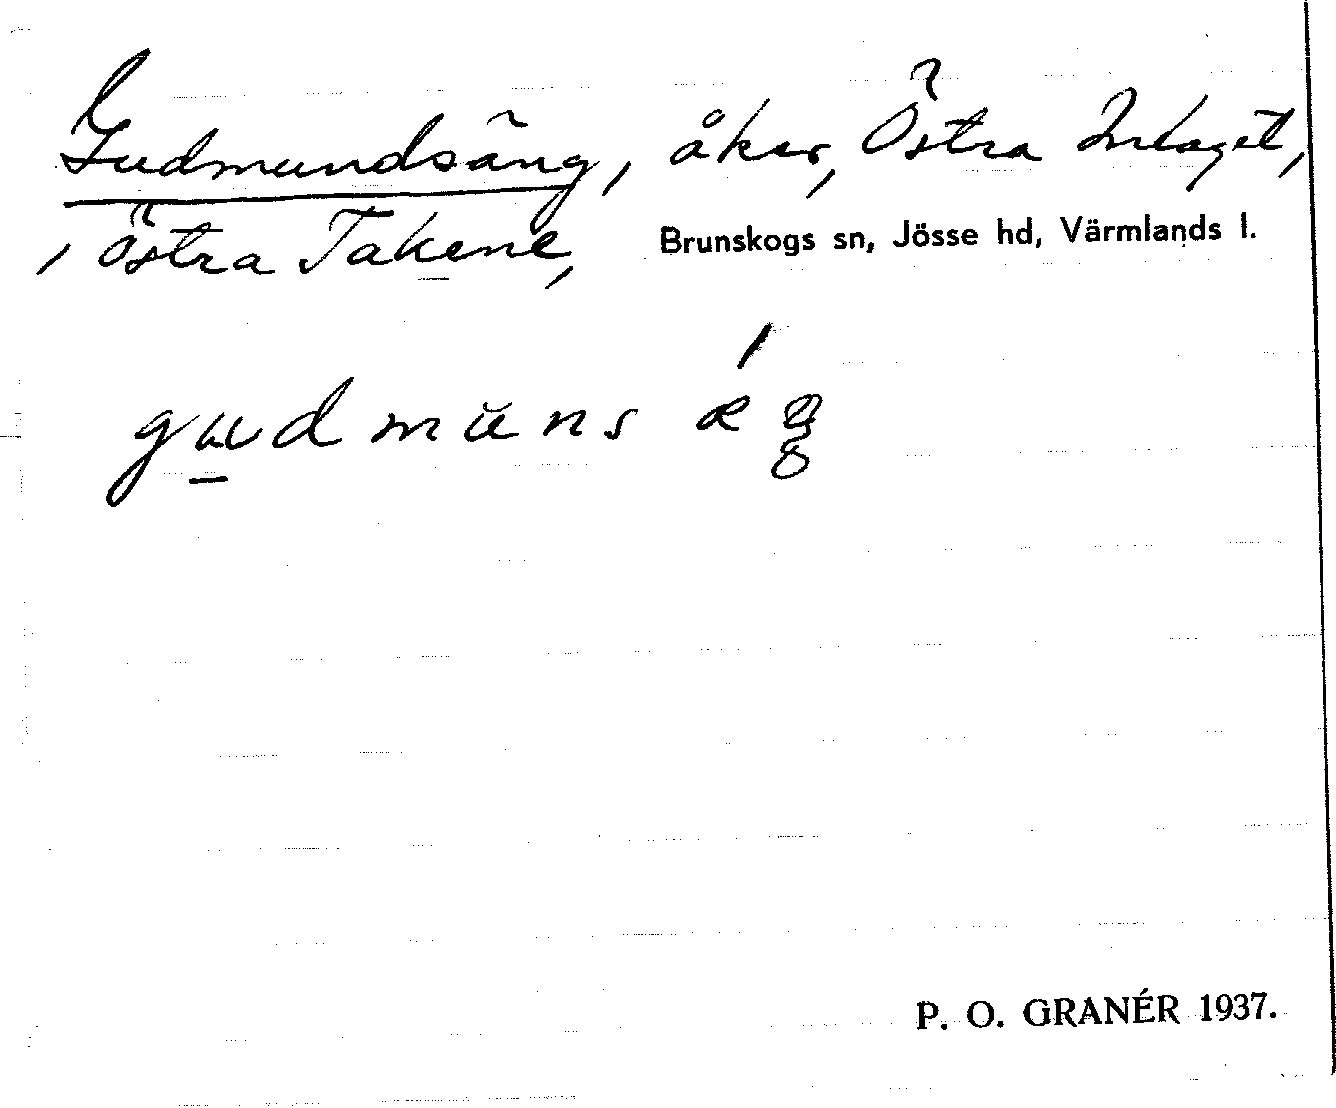 Gudmundsäng, åker, Östra Intaget,
i Östra Takene, Brunskogs sn, Jösse hd, Värmlands l.
gudmuns æŋ
P. O. GRANÉR 1937.